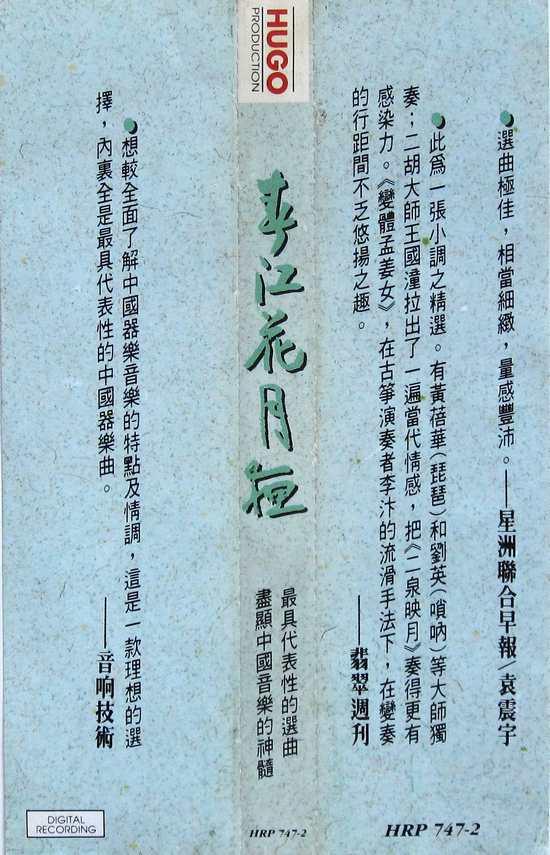 選曲極佳，相當細緻，量感豐沛。——星洲聯合早報/袁震宇
此爲一張小調之精選。有黃蓓華(琵琶)和劉英(嗩吶)等大師獨
奏；二胡大師王國潼拉出了一遍當代情感，把《二泉映月》奏得更有
感染力。《變體孟姜女》，在古箏演奏者李汴的流滑手法下，在變奏
的行距間不乏悠揚之趣。
——翡翠週刊
HRP 747-2
HUGO
PRODUCTION
春江花月夜
最具代表性的選曲
盡顯中國音樂的神髓
HRP 747-2
想較全面了解中國器樂音樂的特點及情調，這是一款理想的選
擇，內裏全是最具代表性的中國器樂曲。
——音响技術
DIGITAL
RECORDING